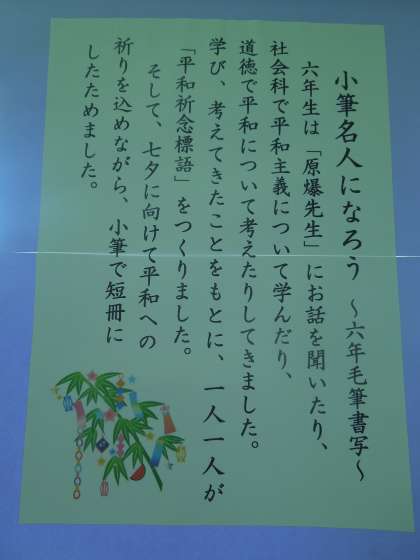 小筆名人になろう
～六年毛筆書写～
六年生は「原爆先生」にお話を聞いたり、
社会科で平和主義について学んだり、
道徳で平和について考えたりしてきました。
学び、考えてきたことをもとに、一人一人が
「平和祈念標語」をつくりました。
そして、七夕に向けて平和への
祈りを込めながら、小筆で短冊に
したためました。